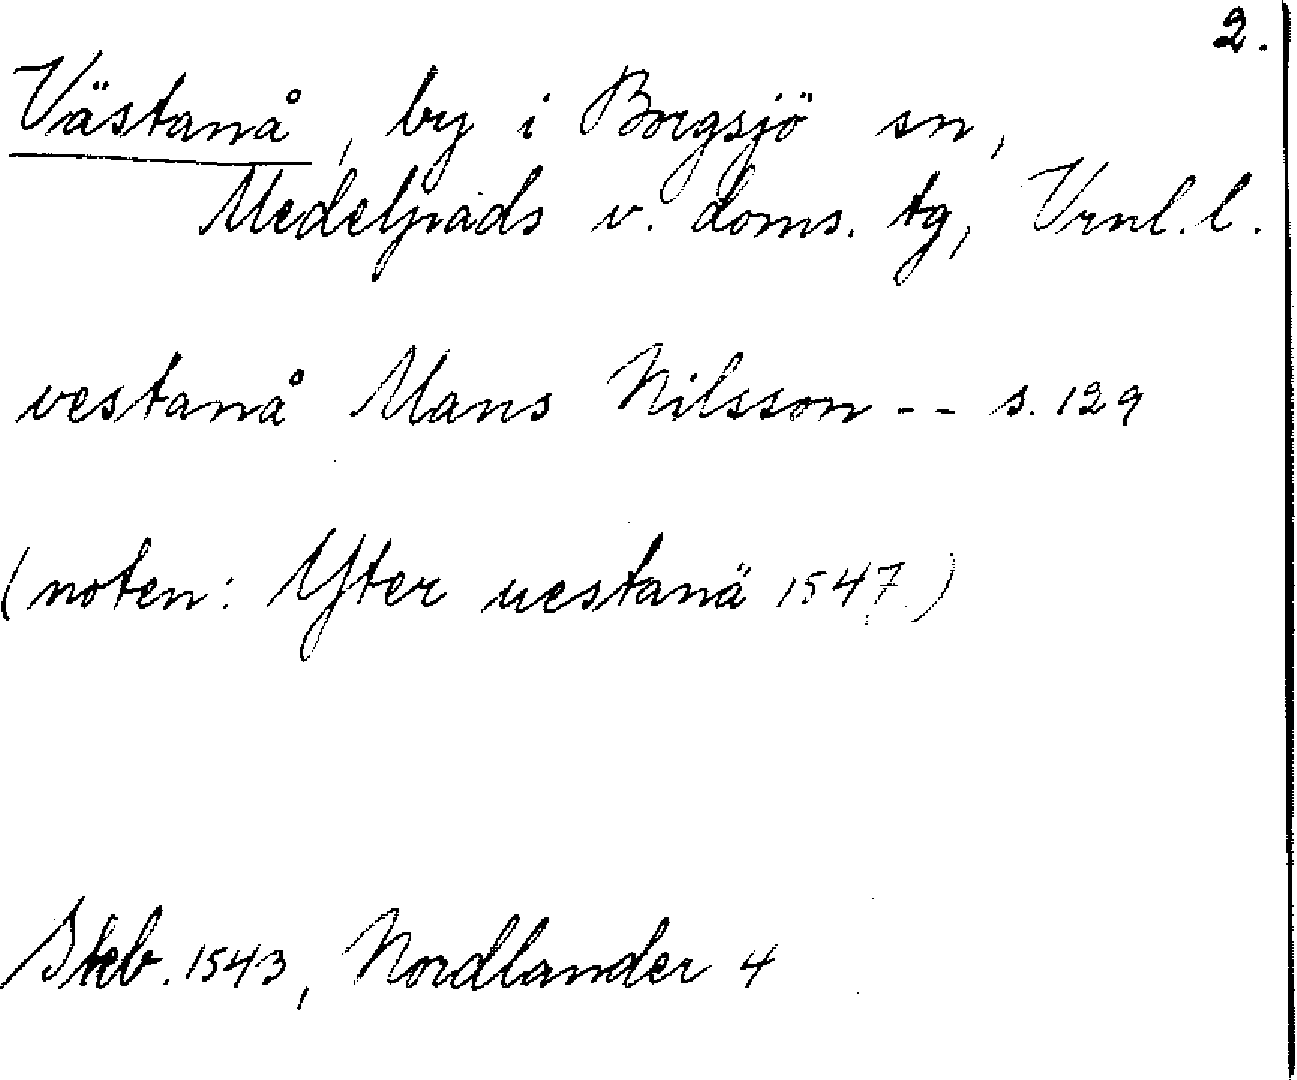 2.
Västanå, by i Borgsjö sn,
Medelpads v. doms. tg, Vrnl. l.
vestanå Mans Nilsson -- s. 129
(noten: Yter uestanä 1547.)
Skb. 1543, Nordlander 4